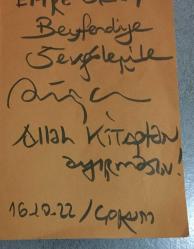 Beyfendiye
Sevgilerimle
Allah Kitaptan
ayırmasın!
16.10.22 / Çorum